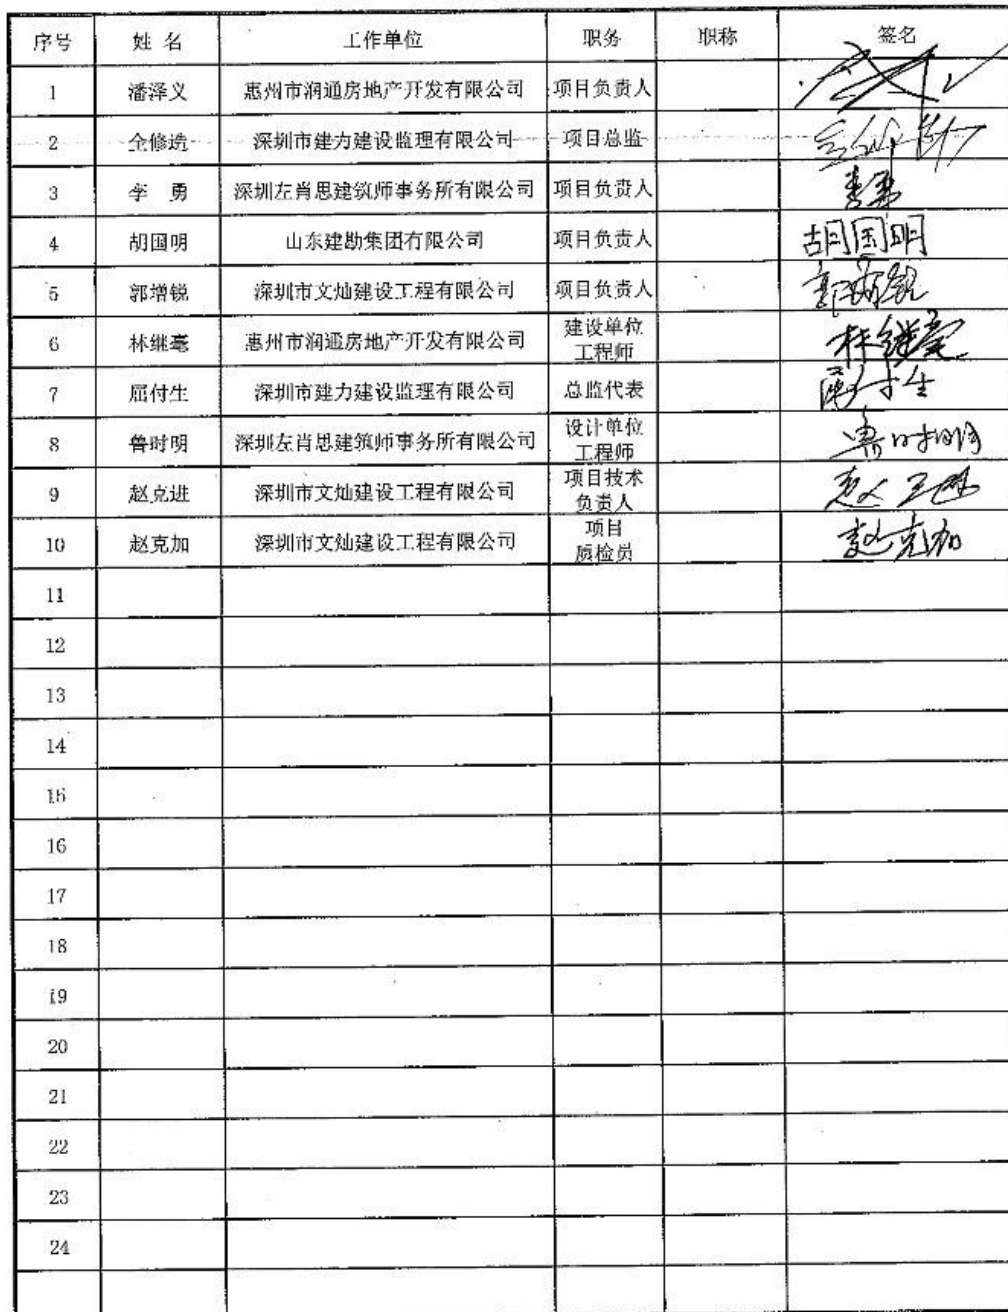 序号 姓 名 工作单位 职务 职称 签名
1 潘泽义 惠州市润通房地产开发有限公司 项目负责人
2 仝修造 深圳市建力建设监理有限公司 项目总监
3 李 勇 深圳左肖思建筑师事务所有限公司 项目负责人 李勇
4 胡国明 山东建勘集团有限公司 项目负责人 胡国明
5 郭增锐 深圳市文灿建设工程有限公司 项目负责人 郭增锐
6 林继毫 惠州市润通房地产开发有限公司 建设单位
工程师 林继毫
7 屈付生 深圳市建力建设监理有限公司 总监代表 屈付生
8 鲁时明 深圳左肖思建筑师事务所有限公司 设计单位
工程师
9 赵克进 深圳市文灿建设工程有限公司 项目技术
负责人
10 赵克加 深圳市文灿建设工程有限公司 项目
质检员 赵克加
11
12
13
14
15
16
17
18
19
20
21
22
23
24